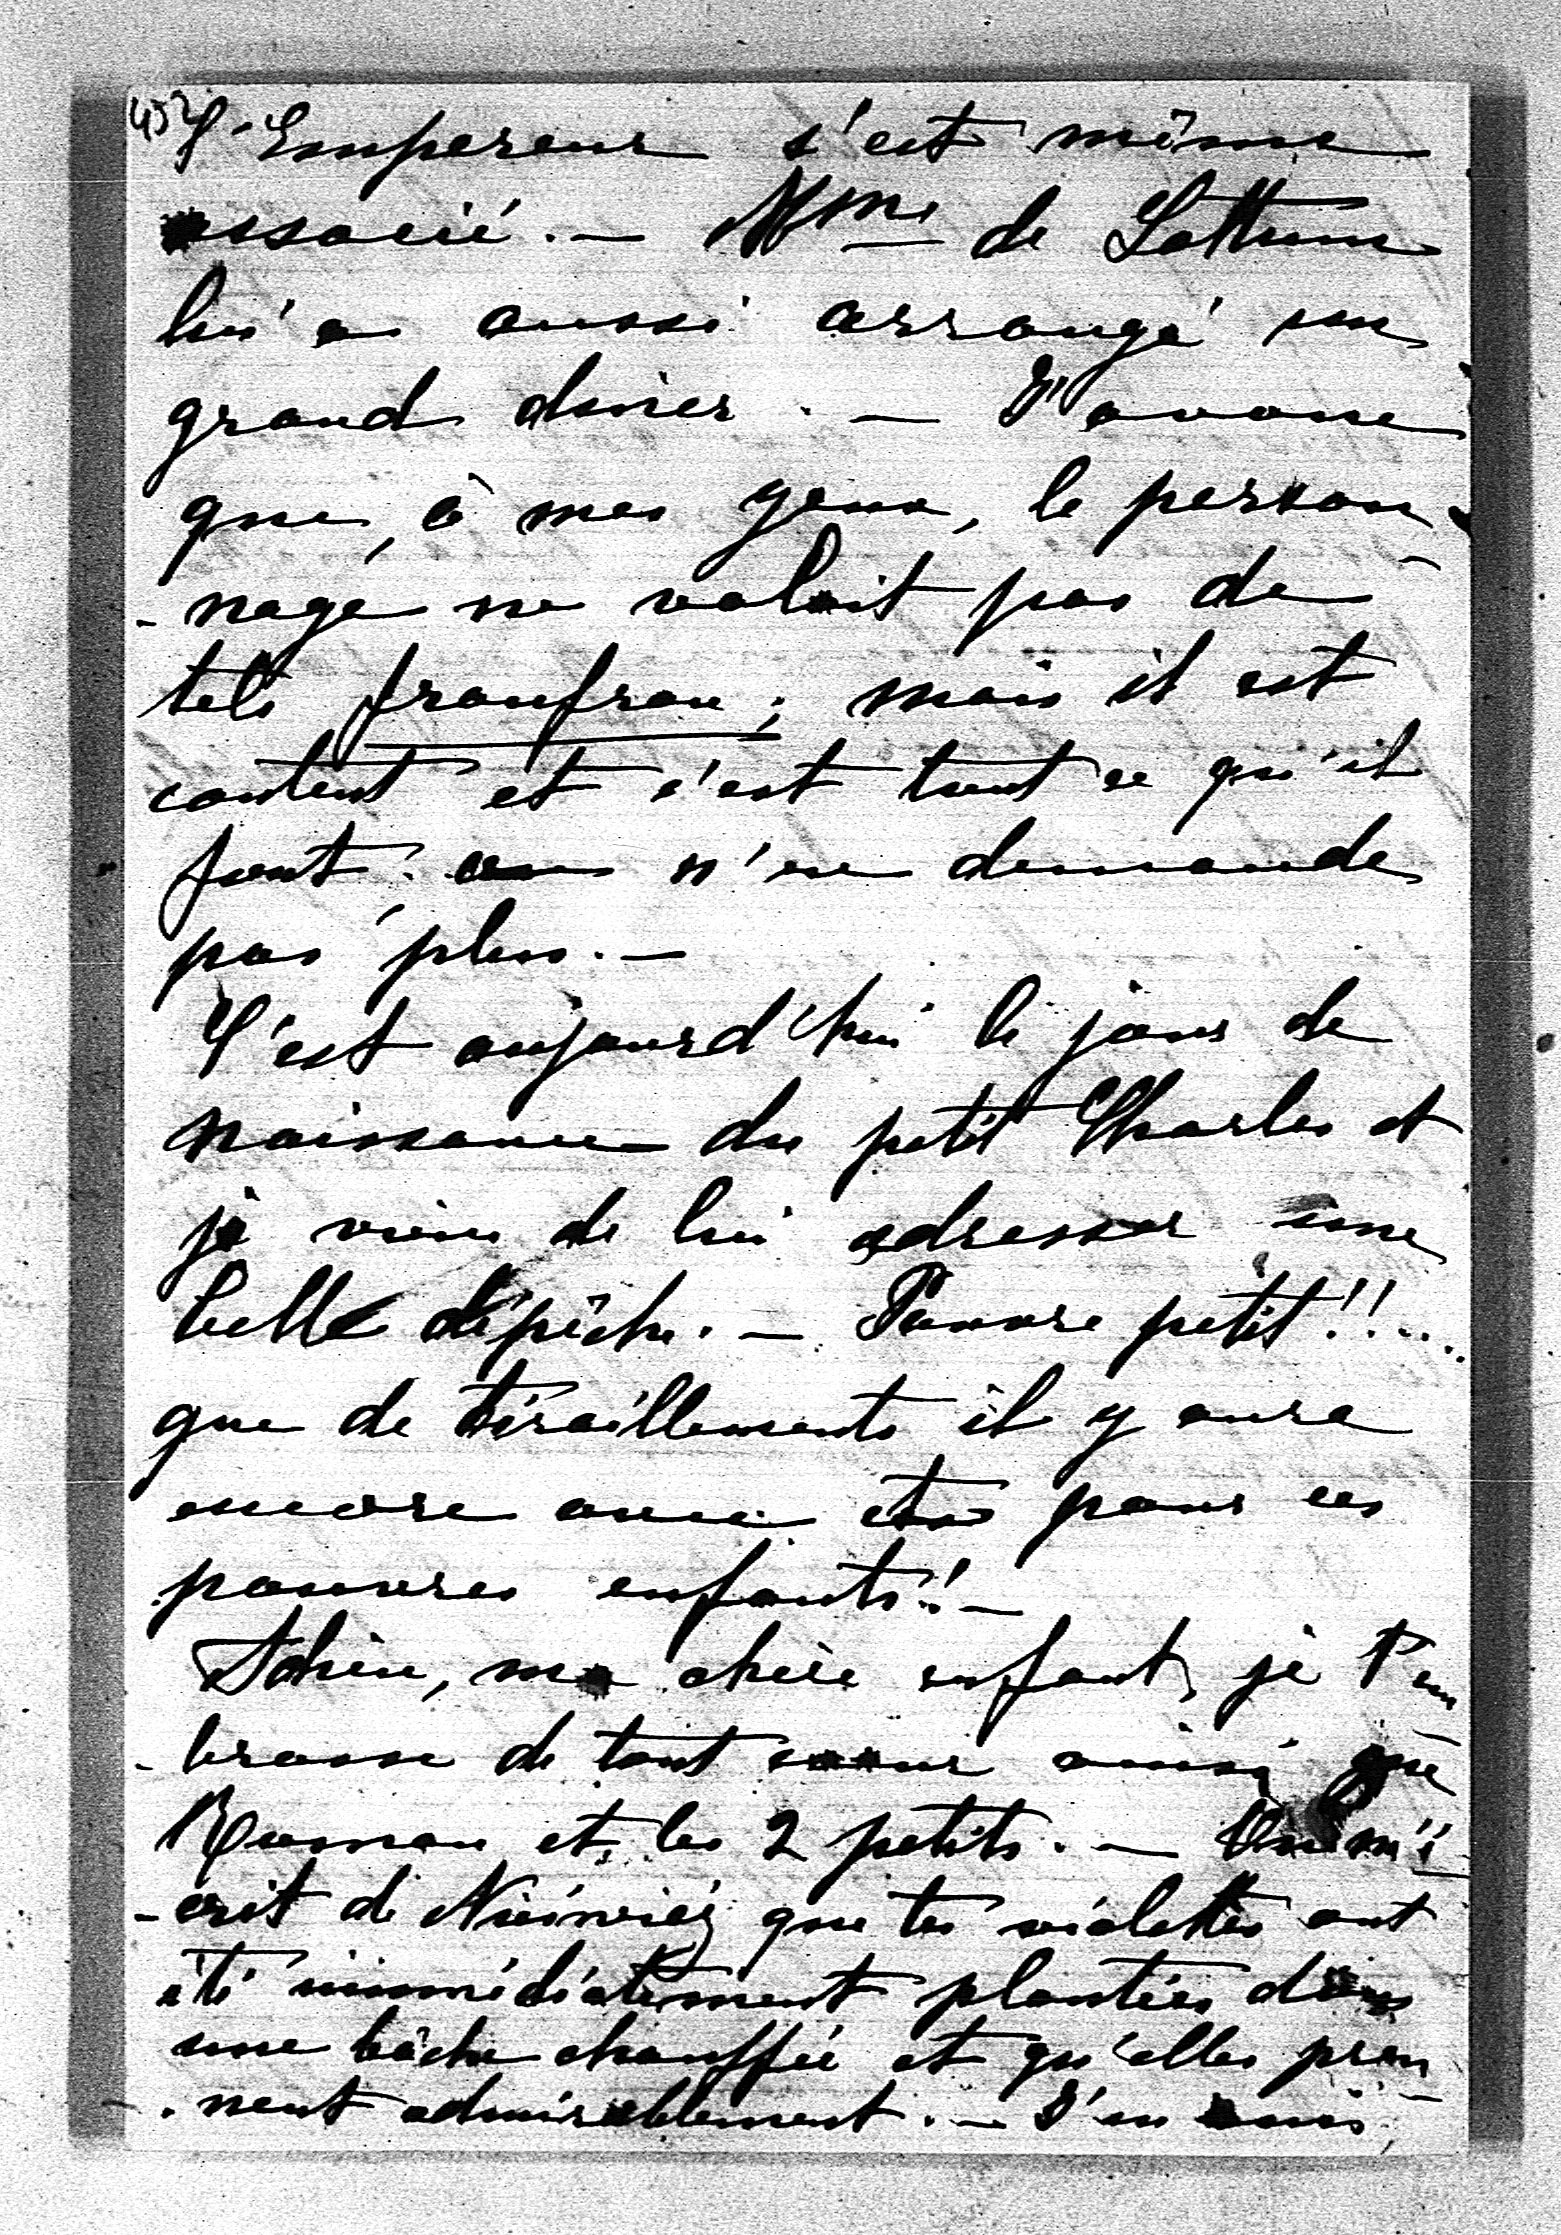 452
L'Empereur s'est même
associé. — Mme de Lottum
lui a aussi arrangé un
grand dîner. — J'avoue
que, à mes yeux, le person
-nage ne valait pas de
tels froufrou; mais il est
content et c'est tout ce qu'il
faut: on n'en demande
pas plus. —
C'est aujourd'hui le jour de
naissance du petit Charles et
je viens de lui adresser une
belle dépêche. — Pauvre petit!!...
que de tiraillements il y aura
encore avec et pour ces
pauvres enfants! —
Adieu, ma chère enfant, je t'em
-brasse de tout cœur ainsi que
Roman et les 2 petits. — On m'é
-crit de Nieśwież que tes violettes ont
été immédiatement plantées dans
une bâche chauffée et qu'elles pren
-nent admirablement. — J'en suis